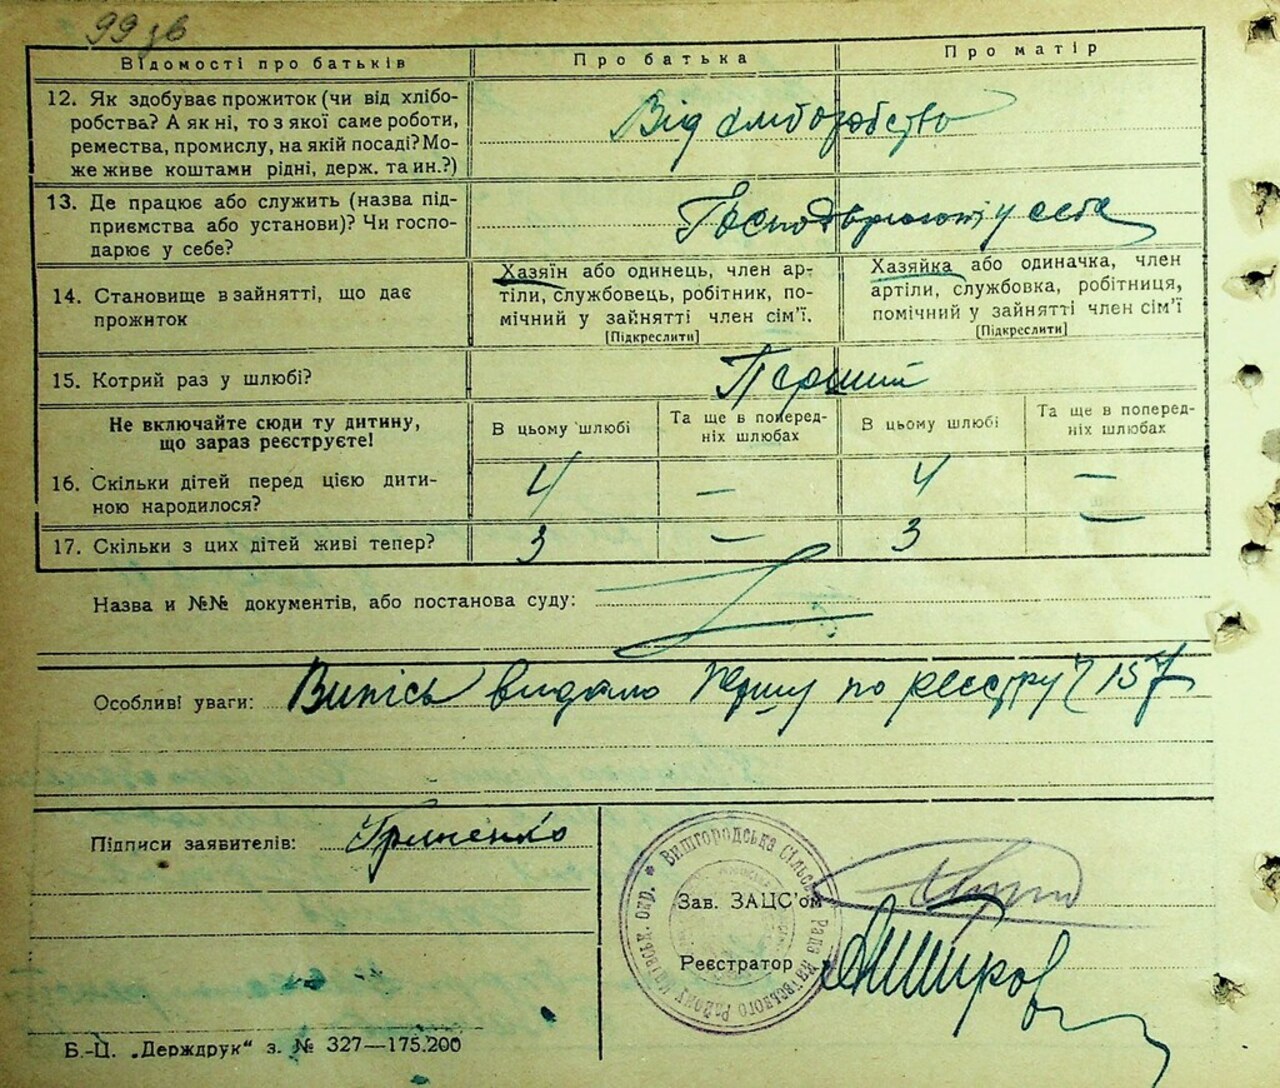 99 зв
Відомості про батьків
Про батька
Про матір
12. Як здобуває прожиток (чи від хлібо-
робства? А як ні, то з якої саме роботи,
ремества, промислу, на якій посаді? Мо-
же живе коштами рідні, держ. та ин.?)
Від хліборобства
13. Де працює або служить (назва під-
приємства або установи)? Чи госпо-
дарює у себе?
у себе
14. Становище в зайнятті, що дає
прожиток
Хазяїн або одинець, член ар-
тіли, службовець, робітник, по-
мічний у зайнятті член сім'ї.
[Підкреслити]
Хазяйка або одиначка, член
артіли, службовка, робітниця,
помічний у зайнятті член сім'ї
[Підкреслити]
15. Котрий раз у шлюбі?
Перший
Не включайте сюди ту дитину,
що зараз реєструєте!
В цьому шлюбі
Та ще в поперед-
ніх шлюбах
В цьому шлюбі
Та ще в поперед-
ніх шлюбах
16. Скільки дітей перед цією дити-
ною народилося?
4 — 4 —
17. Скільки з цих дітей живі тепер?
3 — 3 —
Назва и №№ документів, або постанова суду:
Особливі уваги: Випісь видано першу по реєстру Ч 157
Підписи заявителів: Гриненко
Вишгородська Сільська Рада Київського Району Київськ. Окр.
Зав. ЗАЦС'ом
Реєстратор
Б.-Ц. „Держдрук" з. № 327—175.200